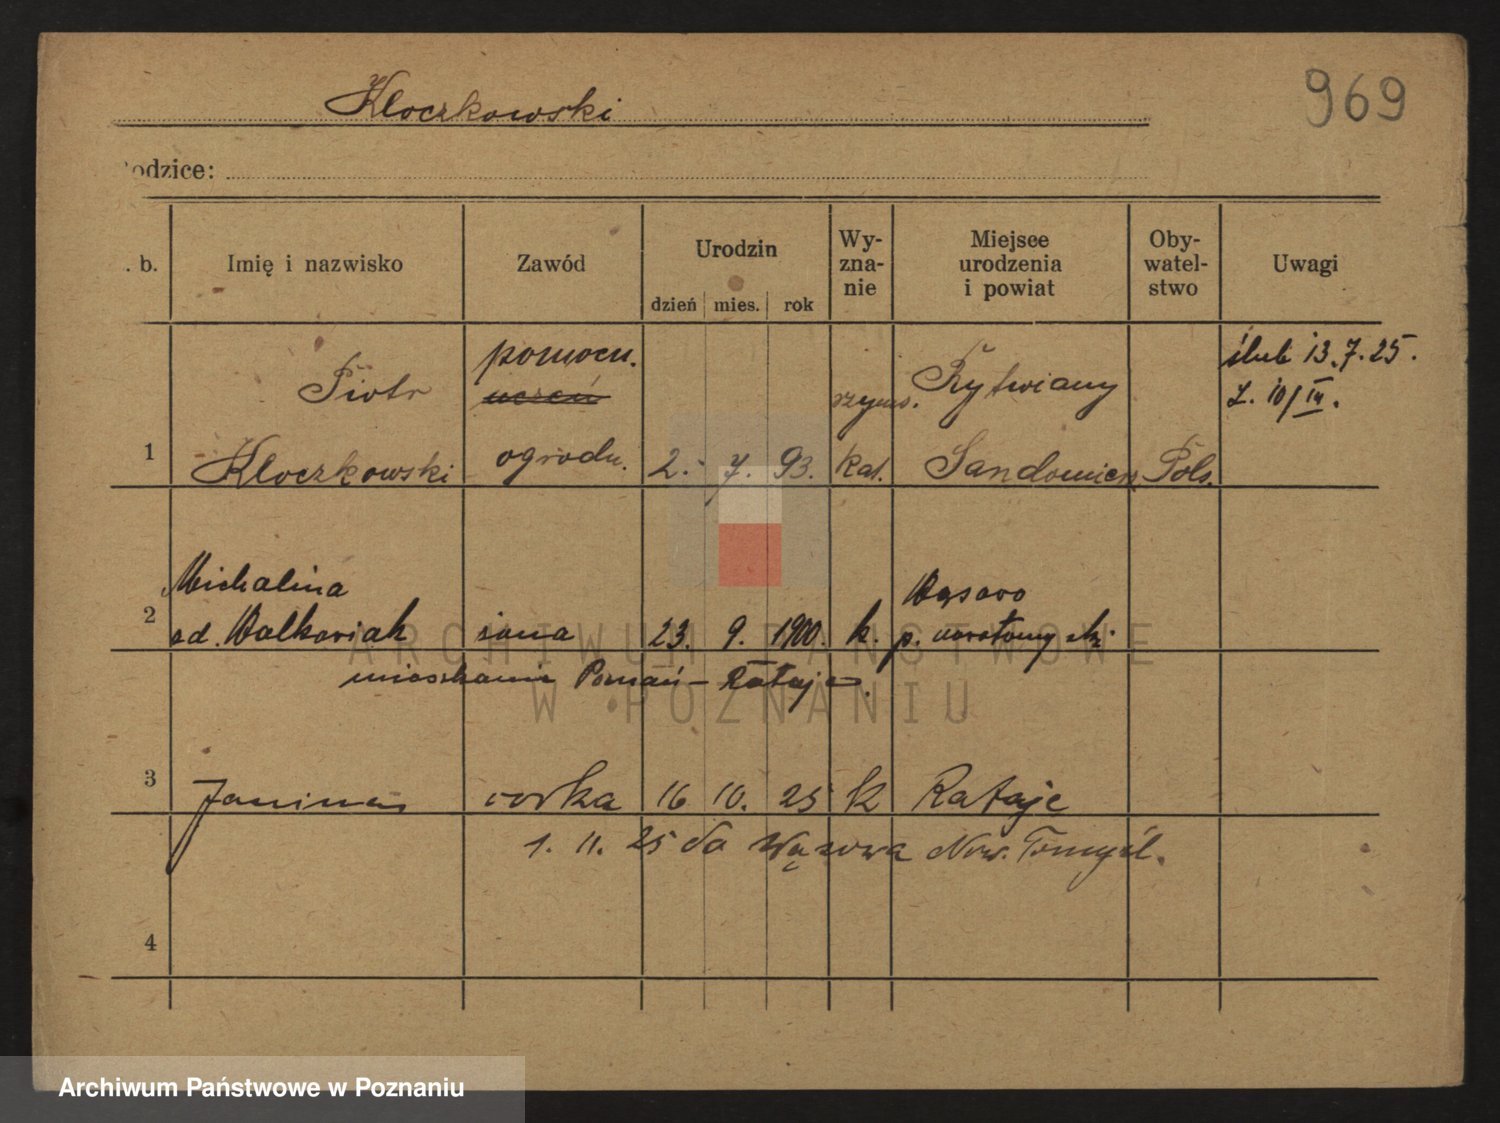 Kloczkowski
969
odzice:
. b.
Imię i nazwisko
Zawód
Urodzin
dzień
mies.
rok
Wy-
zna-
nie
Miejsce
urodzenia
i powiat
Oby-
watel-
stwo
Uwagi
pomocn.
ślub 13.7.25.
Piotr
uczeń
rzyms.
Rytwiany
Z. 10/IV.
1
Kloczkowski
ogrodn.
2. 7. 93.
kat.
Sandomierz
Pols.
Michalina
Wąsowo
2
od. Walkowiak
żona
23. 9. 1900.
k.
p. nowotomyski
mieszkanie Poznań – Rataje.
3
Janina
corka
16 10. 25
k
Rataje
1. 11. 25 do Wąsowa Now. Tomyśl.
4
ARCHIWUM PAŃSTWOWE
W POZNANIU
Archiwum Państwowe w Poznaniu